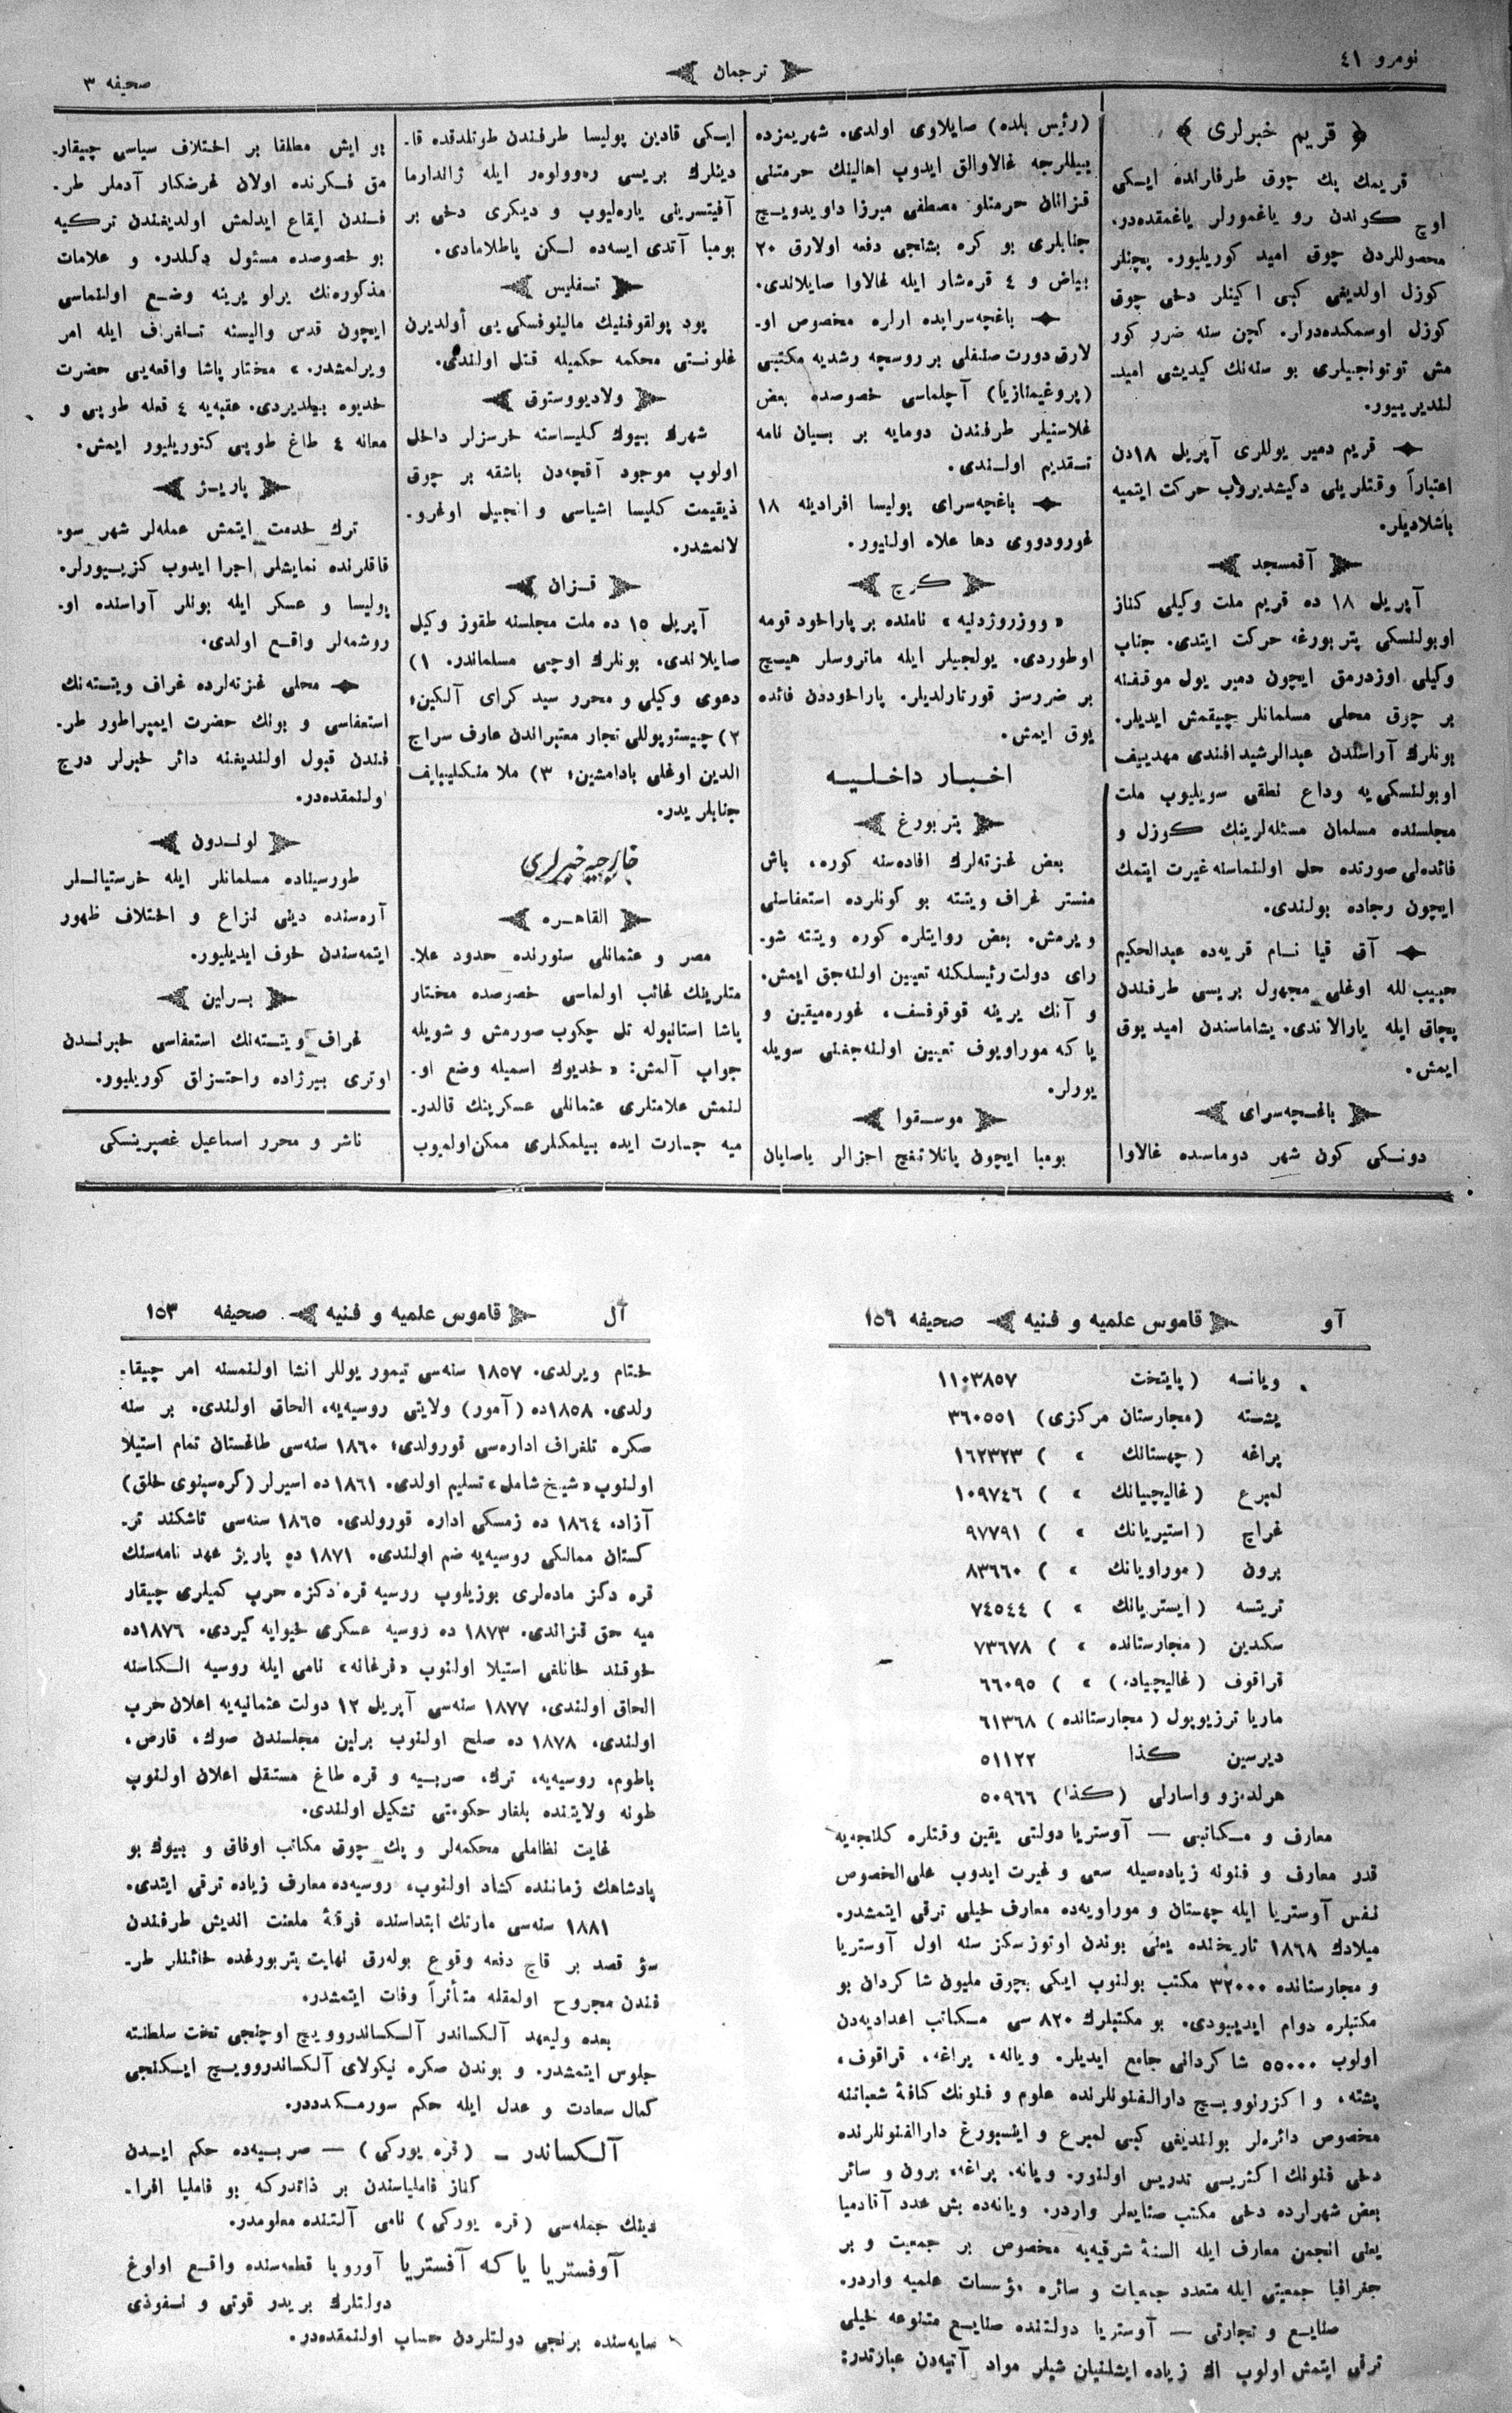 نومرو ٤١
ترجمان
صحيفه ٣
﴿ قريم خبرلری ﴾
قريمك پك چوق طرفارنده ايسكی
اوچ كوندن رو ياغمورلر ياغمقده‌در.
محصوللردن چوق اميد كوريليور. پچنلر
كوزل اولديغی كبی اكينلر دخی چوق
كوزل اوسمكده‌درلر. كچن سنه ضرر كور
مش توتونجيلری بو سنه‌نك كيديشی اميد-
لنديرييور.
قريم دمير يوللری آپريل ١٨دن
اعتباراً وقتلرينی دكيشديروب حركت ايتميه
باشلاديلر.
آقمسجد
آپريل ١٨ ده قريم ملت وكيلی كناز
اوبولنسكی پتربورغه حركت ايتدی. جناب
وكيلی اوزدرمق ايچون دمير يول موقفنه
بر چوق محلی مسلمانلر چيقمش ايديلر.
بونلرك آراسندن عبدالرشيد افندی مهدييف
اوبولنسكی‌يه وداع نطقی سويليوب ملت
مجلسنده مسلمان مسئله‌لرينك كوزل و
فائده‌لی صورتده حل اولنماسنه غيرت ايتمك
ايچون رجاده بولندی.
آق قيا نام قريه‌ده عبدالحكيم
حبيب لله اوغلی مجهول بريسی طرفندن
پچاق ايله يارالاندی. يشاماسندن اميد يوق
ايمش.
باغچه‌سرای
دونكی كون شهر دوماسده غالاوا
(رئيس بلده) صايلاوی اولدی. شهريمزده
ييللرجه غالاوالق ايدوب اهالينك حرمتنی
قزانان حرمتلو مصطفی ميرزا داويدويچ
جنابلری بو كره بشنجی دفعه اولارق ٢٠
بياض و ٤ قره‌شار ايله غالاوا صايلاندی.
باغچه‌سرايده ارلره مخصوص او-
لارق دورت صنفلی بر روسچه رشديه مكتبی
(پروغيمنازيا) آچلماسی خصوصده بعض
غلاسنيلر طرفندن دومايه بر بيان نامه
تقديم اولندی.
باغچه‌سرای پوليسا افرادينه ١٨
غورودووی دها علاه اولنيور.
كرچ
«ووزروژدنيه» نامنده بر پاراخود قومه
اوطوردی. يولجيلر ايله ماتروسلر هيچ
بر ضررسز قورتارلديلر. پاراخوددن فائده
يوق ايمش.
اخبار داخليه
پتربورغ
بعض غزته‌لرك افاده‌سنه كوره، باش
منستر غراف ويتته بو كونلرده استعفاسنی
ويرمش. بعض روايتلره كوره ويتته شو-
رای دولت رئيسلكنه تعيين اولنه‌جق ايمش.
و آنك يرينه قوقوفسف، غوره‌ميقين و
ياكه موراويوف تعيين اولنه‌جغنی سويله
يورلر.
موسقوا
بومبا ايچون پاتلاتغچ اجزالر ياصايان
ايكی قادين پوليسا طرفندن طوتلدقده قا-
دينلرك بريسی ره‌وولوور ايله ژاندارما
آفيتسرينی ياره‌ليوب و ديكری دخی بر
بومبا آتدی ايسه‌ده لكن پاطلامادی.
تفليس
پود پولقوفنيك مالينوفسكی يی أولديرن
غلونتی محكمه حكميله قتل اولندی.
ولاديووستوق
شهرك بيوك كليساسنه خرسزلر داخل
اولوب موجود آقچه‌دن باشقه بر چوق
ذيقيمت كليسا اشياسی و انجيل اوغرو-
لانمشدر.
قزان
آپريل ١٥ ده ملت مجلسنه طقوز وكيل
صايلاندی. بونلرك اوچی مسلماندر. ١)
دعوی وكيلی و محرر سيد كرای آلكين؛
٢) چيستوپوللی تجار معتبراندن عارف سراج
الدين اوغلی بادامشين؛ ٣) ملا منكليبايف
جنابلريدر.
خارجيه خبرلری
القاهره
مصر و عثمانلی سنورنده حدود علا-
متلرينك غائب اولماسی خصوصده مختار
پاشا استانبوله تل چكوب صورمش و شويله
جواب آلمش: «خديوك اسميله وضع او-
لنمش علامتلری عثمانلی عسكرينك قالدر-
ميه جسارت ايده بيلمكلری ممكن اولميوب
بو ايش مطلقا بر اختلاف سياسی چيقار-
مق فكرنده اولان غرضكار آدملر طر-
فندن ايقاع ايدلمش اولديغندن تركيه
بو خصوصده مسئول دكلدر. و علامات
مذكوره‌نك برلو يرينه وضع اولنماسی
ايچون قدس واليسنه تلغراف ايله امر
ويرلمشدر.» مختار پاشا واقعه‌يی حضرت
خديوه بيلديردی. عقبه‌يه ٤ قعله طوپی و
معانه ٤ طاغ طوپی كتوريليور ايمش.
پاريژ
ترك خدمت ايتمش عمله‌لر شهر سو-
قاقلرنده نمايشلر اجرا ايدوب كزيسيورلر.
پوليسا و عسكر ايله بونلر آراسنده او-
روشمه‌لر واقع اولدی.
محلی غزته‌لرده غراف ويتته‌نك
استعفاسی و بونك حضرت ايمپراطور طر-
فندن قبول اولنديغنه دائر خبرلر درج
اولنمقده‌در.
لوندون
طورسيناده مسلمانلر ايله خرستيانلر
آره‌سنده دينی نزاع و اختلاف ظهور
ايتمه‌سندن خوف ايديليور.
برلين
غراف ويتته‌نك استعفاسی خبرندن
اوتری بيرژاده راحتسزلق كوريليور.
ناشر و محرر اسماعيل غصپرينسكی
آو
قاموس علميه و فنيه
صحيفه ١٥٦
ويانه (پايتخت ١١٠٣٨٥٧
پشته (مجارستان مركزی) ٣٦٠٥٥١
پراغه (چهستانك » ) ١٦٢٣٢٣
لمبرغ (غاليچيانك » ) ١٠٩٧٤٦
غراچ (استيريانك » ) ٩٧٧٩١
برون (موراويانك » ) ٨٣٦٦٠
تريتسه (ايستريانك » ) ٧٤٥٤٤
سكدين (مجارستانده » ) ٧٣٦٧٨
قراقوف (غاليچياده) » ) ٦٦٠٩٥
ماريا ترزيوپول (مجارستانده) ٦١٣٦٨
ديرسين كذا ٥١١٢٢
هرلدمزو واسارلی (كذا) ٥٠٩٦٦
معارف و مكاتبی — آوستريا دولتی يقين وقتلره كلنجه‌يه
قدر معارف و فنونه زياده‌سيله سعی و غيرت ايدوب علی الخصوص
نفس آوستريا ايله چهستان و موراويه‌ده معارف خيلی ترقی ايتمشدر.
ميلادك ١٨٦٨ تاريخنده يعنی بوندن اوتوز سكز سنه اول آوستريا
و مجارستانده ٣٢٠٠٠ مكتب بولنوب ايكی بچوق مليون شاكردان بو
مكتبلره دوام ايدييودی. بو مكتبلرك ٨٢٠ سی مكاتب اعداديه‌دن
اولوب ٥٥٠٠٠ شاكردانی جامع ايديلر. ويانه، پراغه، قراقوف،
پشته، و اكزرنوويچ دارالفنونلرنده علوم و فنونك كافهٔ شعباتنه
مخصوص دائره‌لر بولنديغی كبی لمبرغ و اينسبورغ دارالفنونلرنده
دخی فنونك اكثريسی تدريس اولنور. ويانه، پراغه، برون و سائر
بعض شهرلرده دخی مكتب صنايعلر واردر. ويانه‌ده بش عدد آقادميا
يعنی انجمن معارف ايله السنهٔ شرقيه‌يه مخصوص بر جمعيت و بر
جغرافيا جمعيتی ايله متعدد جمعيات و سائره مؤسسات علميه واردر.
صنايع و تجارتی — آوستريا دولتنده صنايع متنوعه خيلی
ترقی ايتمش اولوب اك زياده ايشلنيان شيلر مواد آتيه‌دن عبارتدر:
آل
قاموس علميه و فنيه
صحيفه ١٥٣
ختام ويرلدی. ١٨٥٧ سنه‌سی تيمور يوللر انشا اولنمسنه امر چيقا-
رلدی. ١٨٥٨ده (آمور) ولايتی روسيه‌يه، الحاق اولندی. بر سنه
صكره تلغراف اداره‌سی قورولدی؛ ١٨٦٠ سنه‌سی طاغستان تمام استيلا
اولنوب «شيخ شامل» تسليم اولدی. ١٨٦١ ده اسيرلر (كره‌سپنوی خلق)
آزاد، ١٨٦٤ ده زمسكی اداره قورولدی. ١٨٦٥ سنه‌سی تاشكند تر-
كستان ممالكی روسيه‌يه ضم اولندی. ١٨٧١ ده پاريژ عهد نامه‌سنك
قره دكز ماده‌لری بوزيلوب روسيه قره دكزه حرب كميلری چيقار
ميه حق قزاندی. ١٨٧٣ ده روسيه عسكری خيوايه كيردی. ١٨٧٦ده
خوقند خانلغی استيلا اولنوب «فرغانه» نامی ايله روسيه الكاسنه
الحاق اولندی. ١٨٧٧ سنه‌سی آپريل ١٢ دولت عثمانيه‌يه اعلان حرب
اولندی. ١٨٧٨ ده صلح اولنوب برلين مجلسندن صوك، قارص،
باطوم، روسيه‌يه، ترك، صربيه و قره طاغ مستقل اعلان اولنوب
طونه ولايتنده بلغار حكومتی تشكيل اولندی.
غايت نظاملی محكمه‌لر و پك چوق مكاتب اوفاق و بيوك بو
پادشاهك زماننده كشاد اولنوب، روسيه‌ده معارف زياده ترقی ايتدی.
١٨٨١ سنه‌سی مارتك ابتداسنده فرقهٔ ملعنت انديش طرفندن
سؤ قصد بر قاچ دفعه وقوع بوله‌رق نهايت پتربورغده خائنلر طر-
فندن مجروح اولمقله متأثراً وفات ايتمشدر.
بعده وليعهد آلكساندر آلكساندروويچ اوچنجی تخت سلطنته
جلوس ايتمشدر. و بوندن صكره نيكولای آلكساندروويچ ايكنجی
كمال سعادت و عدل ايله حكم سورمكدددر.
آلكساندر ــ (قره يوركی) — صربيه‌ده حكم ايدن
كناز فاميلياسندن بر ذاتدركه بو فاميليا افرا-
دينك جمله‌سی (قره يوركی) نامی آلتنده معلومدر.
آوفستريا ياكه آفستريا آوروپا قطعه‌سنده واقع اولوغ
دولتلرك بريدر قوتی و نفوذی
سايه‌سنده برنجی دولتلردن حساب اولنمقده‌در.